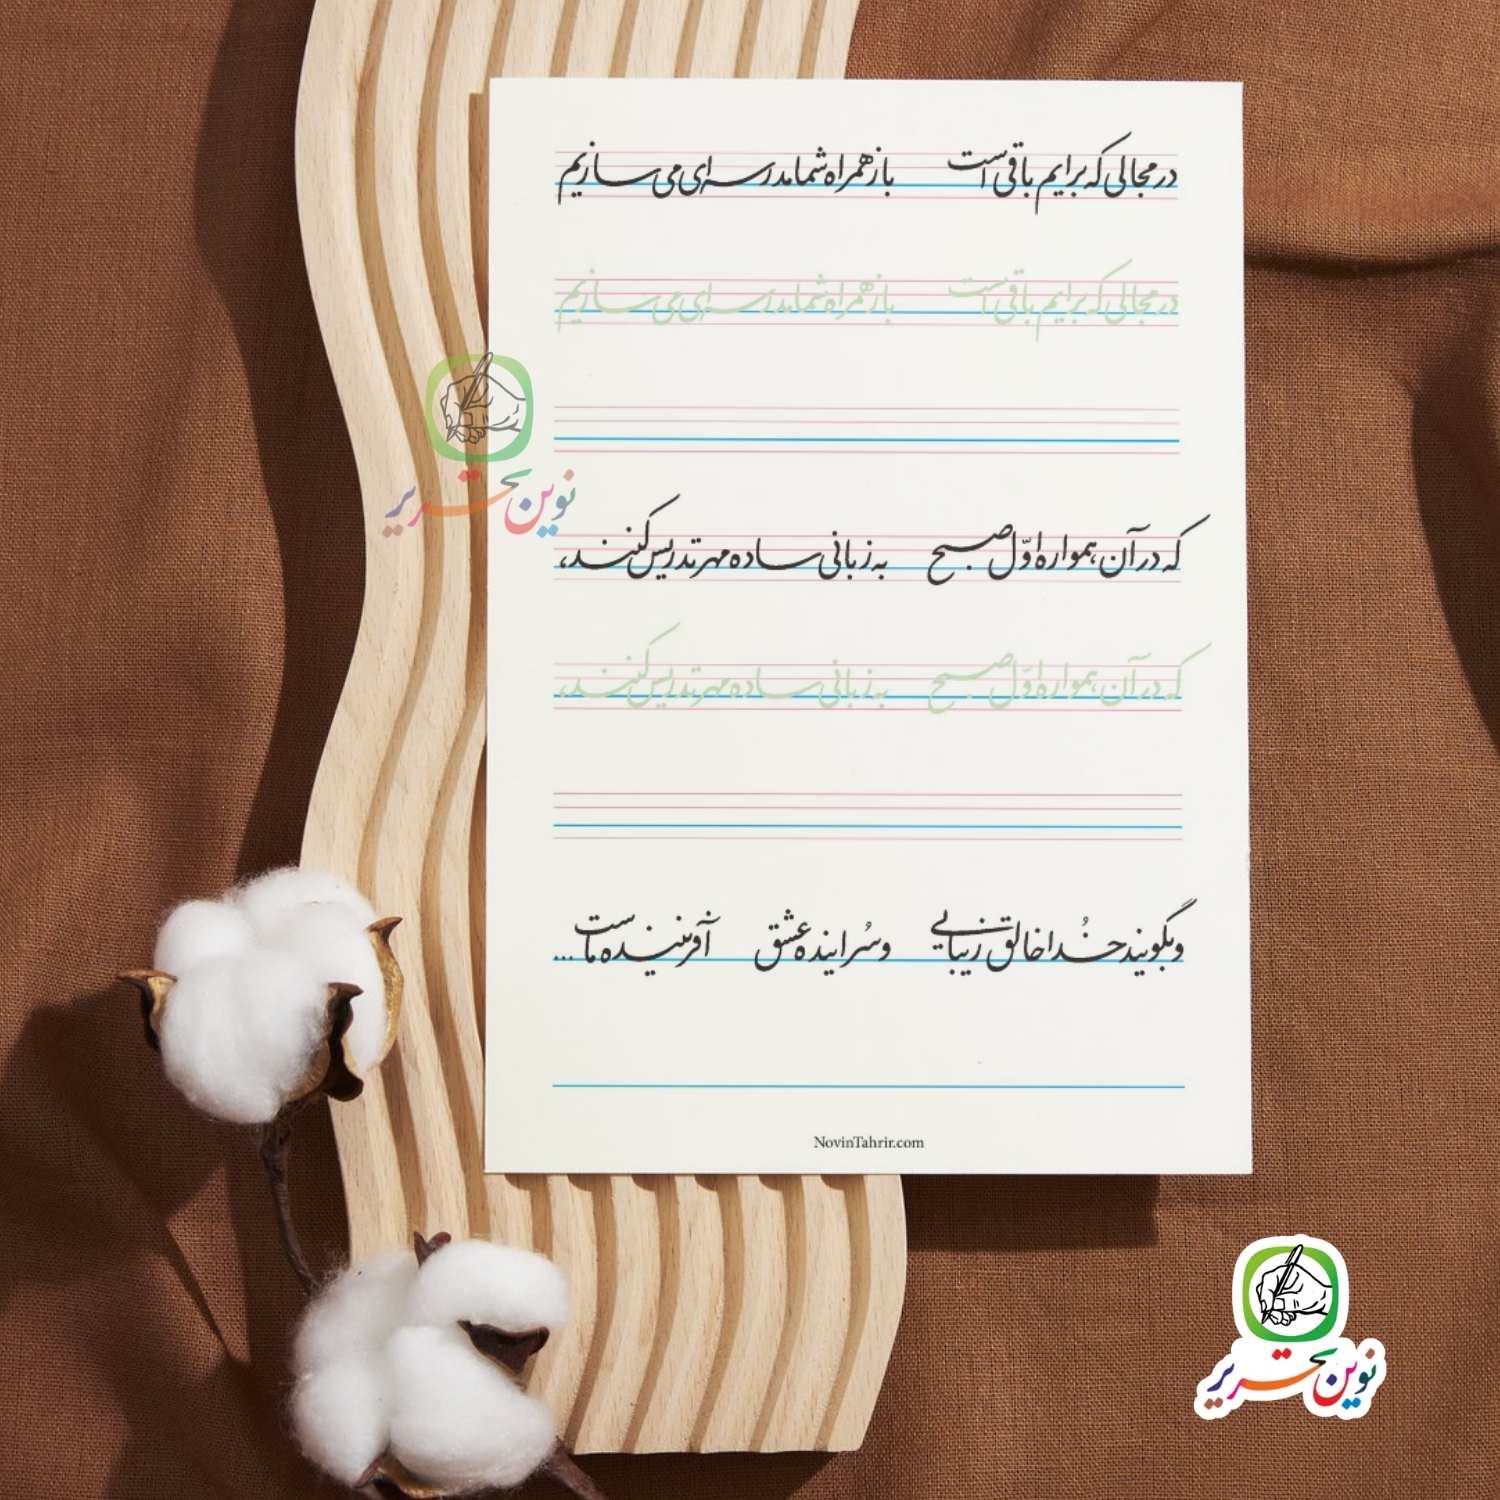 در مجالی که برایم باقی است باز همراه شما مدرسه‌ای می‌سازیم
در مجالی که برایم باقی است باز همراه شما مدرسه‌ای می‌سازیم
نوین تحریر
که در آن، همواره اوّل صبح به زبانی ساده مهر تدریس کنند،
که در آن، همواره اوّل صبح به زبانی ساده مهر تدریس کنند،
و بگویند خُدا خالق زیبایی و سُراینده عشق آفریننده ماست ...
NovinTahrir.com
نوین تحریر